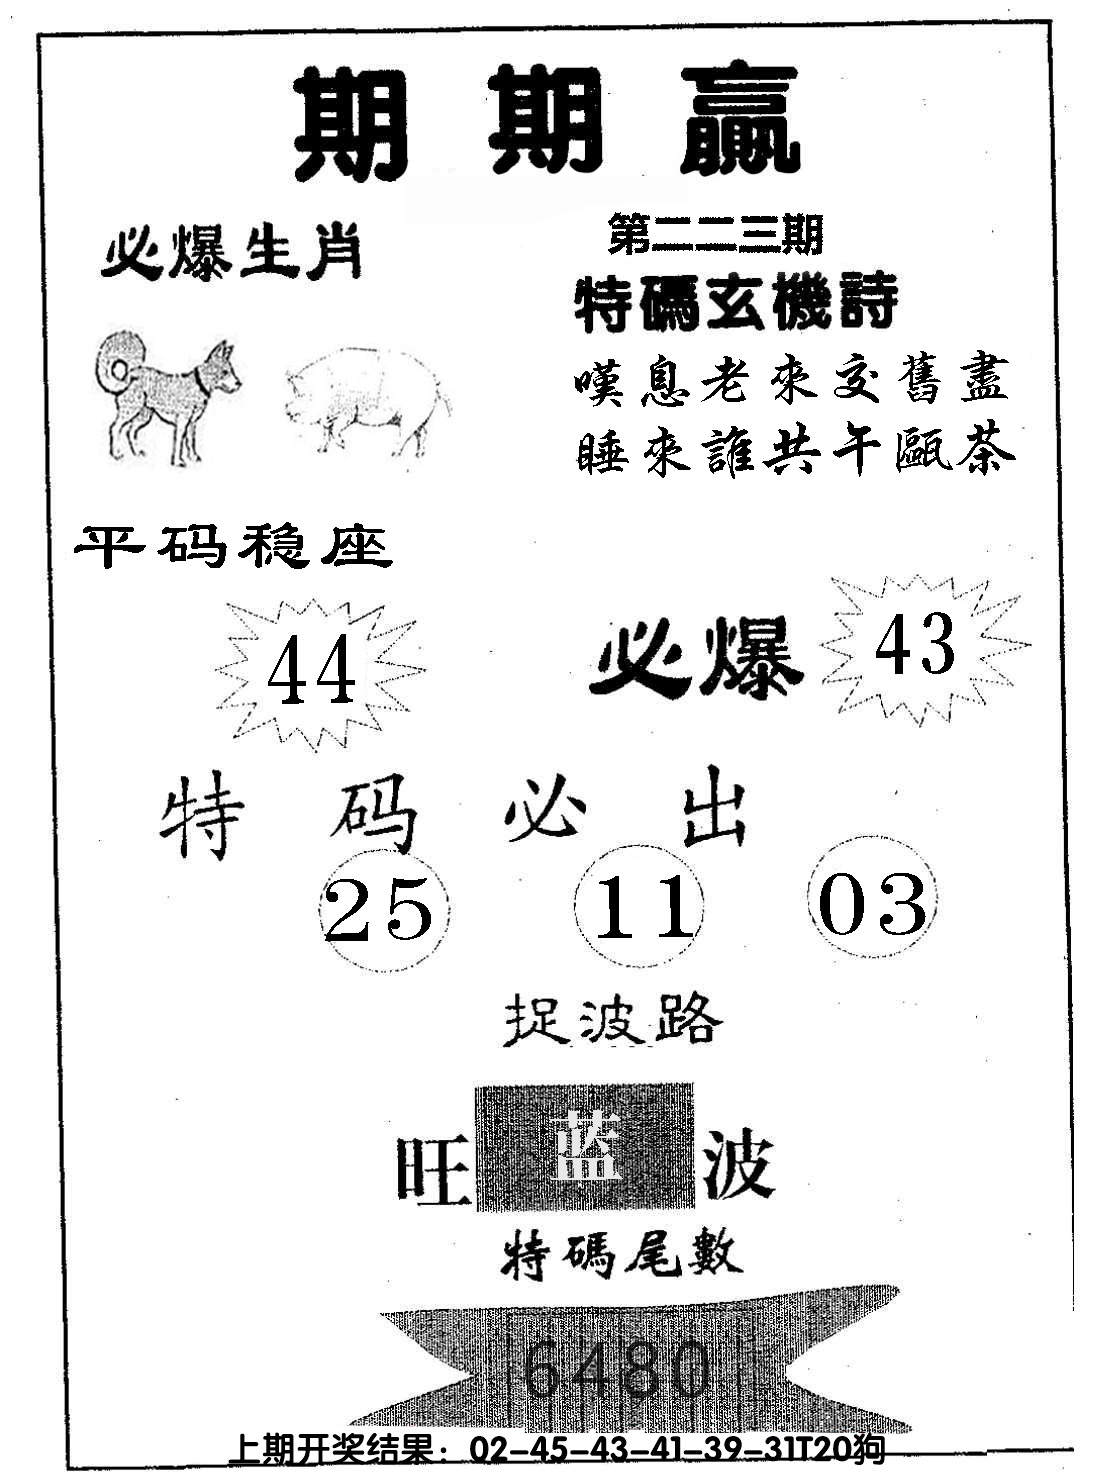 期期赢
必爆生肖
第二二三期
特碼玄機詩
嘆息老來交舊盡
睡來誰共午甌茶
平码稳座
44
必爆 43
特码必出
25 11 03
捉波路
旺 蓝 波
特碼尾數
6480
上期开奖结果：02-45-43-41-39-31T20狗